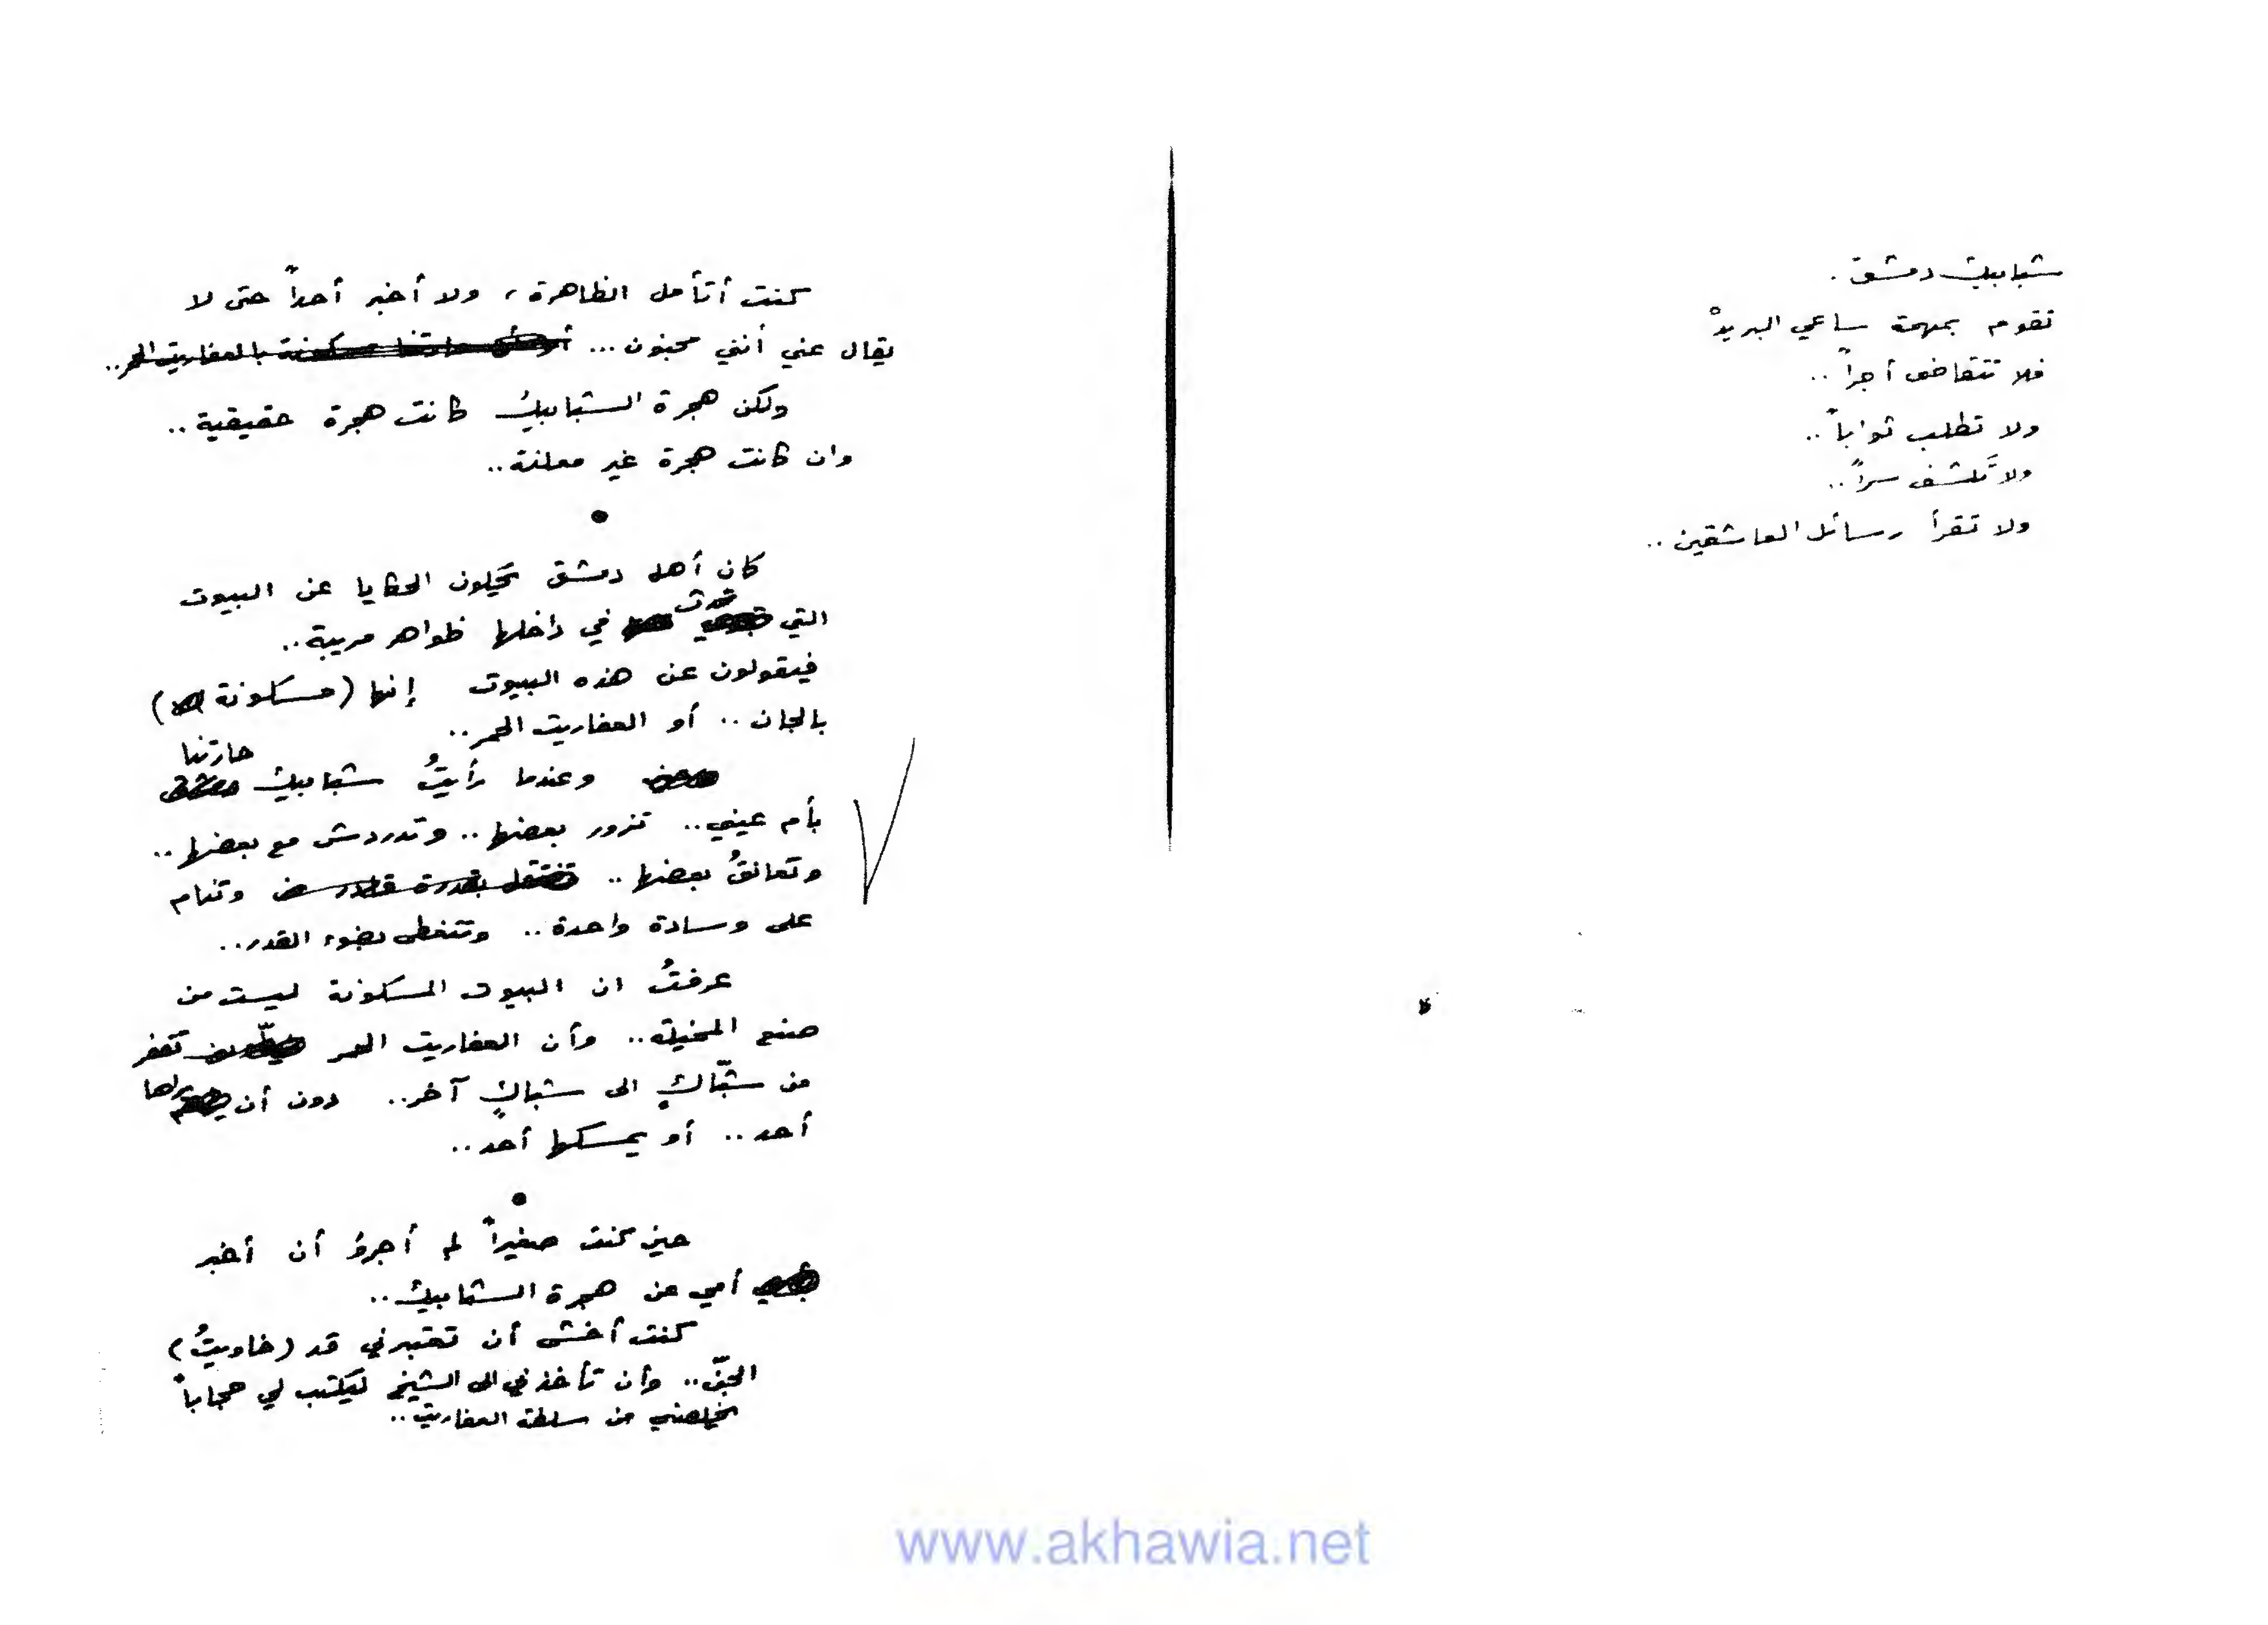 شبابيك دمشق.
تقوم بمهمة ساعي البريدْ
فلا تتقاضى أجراً..
ولا تطلب ثواباً..
ولا تَكشف سراً..
ولا تقرأ رسائل العاشقين..
كنت أتأمل الظاهرة، ولا أخبر أحداً حتى لا
يقال عني أنني مجنون... أو أن حارتنا مسكونة بالعفاريت الحمر..
ولكن هجرة الشبابيك كانت هجرة حقيقية..
وان كانت هجرة غير معلنة..
•
كان أهل دمشق يحكون الحكايا عن البيوت
التي تحدث في داخلها ظواهر مريبة..
فيقولون عن هذه البيوت إنها (مسكونة)
بالجان.. أو العفاريت الحمر..
وعندما رأيتُ شبابيك حارتنا
بأم عيني.. تزور بعضها.. وتدردش مع بعضها..
وتعانقُ بعضها.. وتنام
على وسادة واحدة.. وتتغطى بضوء القمر..
عرفتُ ان البيوت المسكونة ليست من
صنع المخيلة.. وأن العفاريت الحمر تقفز
من شبّاكٍ الى شباكٍ آخر.. دون أن يراها
أحد.. أو يمسكها أحد..
•
حين كنت صغيراً لم أجرؤ أن أخبر
أمي عن هجرة الشبابيك..
كنت أخشى أن تعتبرني قد (خاويتُ)
الجنّ.. وأن تأخذني الى الشيخ ليكتب لي حجاباً
يخلصني من سلطة العفاريت..
www.akhawia.net